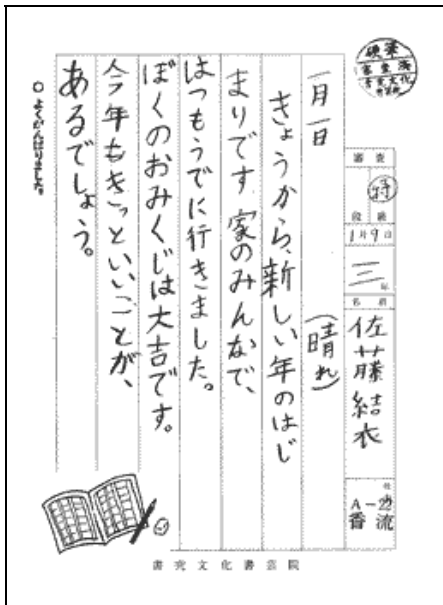 硬筆
審査済
書究文化
書芸院
審査
特
段級
1月9日
三年
名前
佐藤結衣
A-22
番流
一月一日 (晴れ)
きょうから、新しい年のはじ
まりです 家のみんなで、
はつもうでに行きました。
ぼくのおみくじは大吉です。
今年もきっといいことが、
あるでしょう。
○よくがんばりました。
書究文化書芸院